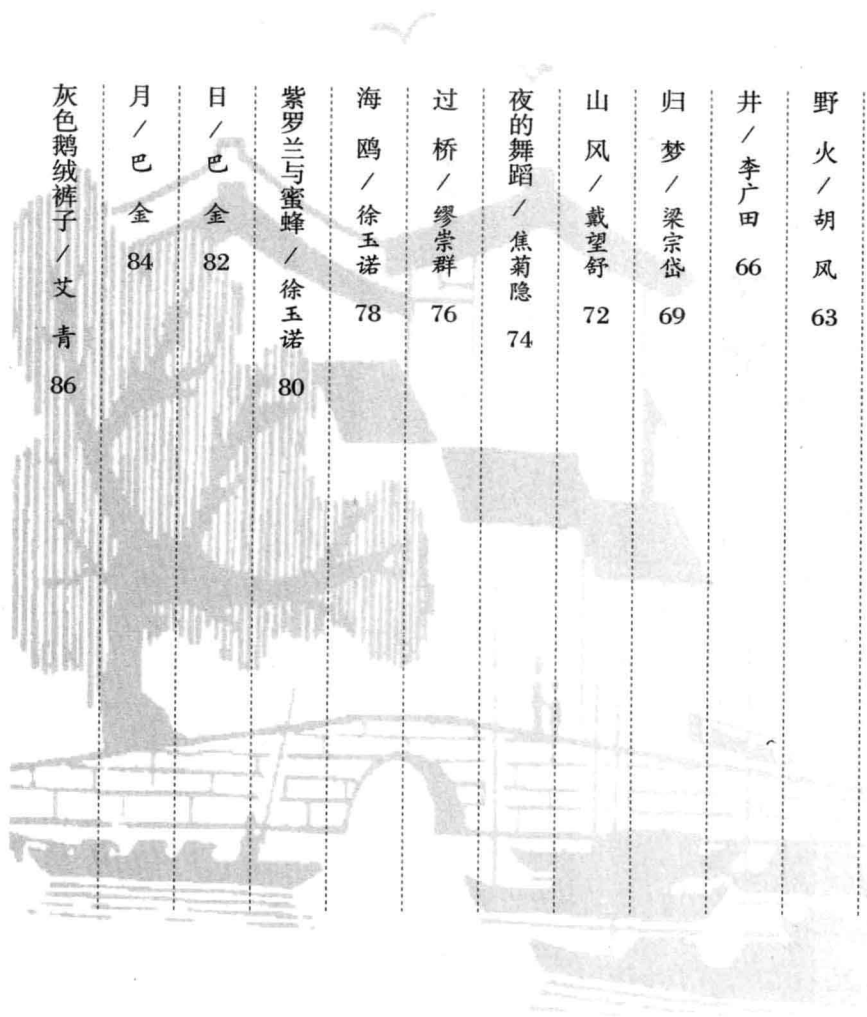 野火/胡风 63
井/李广田 66
归梦/梁宗岱 69
山风/戴望舒 72
夜的舞蹈/焦菊隐 74
过桥/缪崇群 76
海鸥/徐玉诺 78
紫罗兰与蜜蜂/徐玉诺 80
日/巴金 82
月/巴金 84
灰色鹅绒裤子/艾青 86